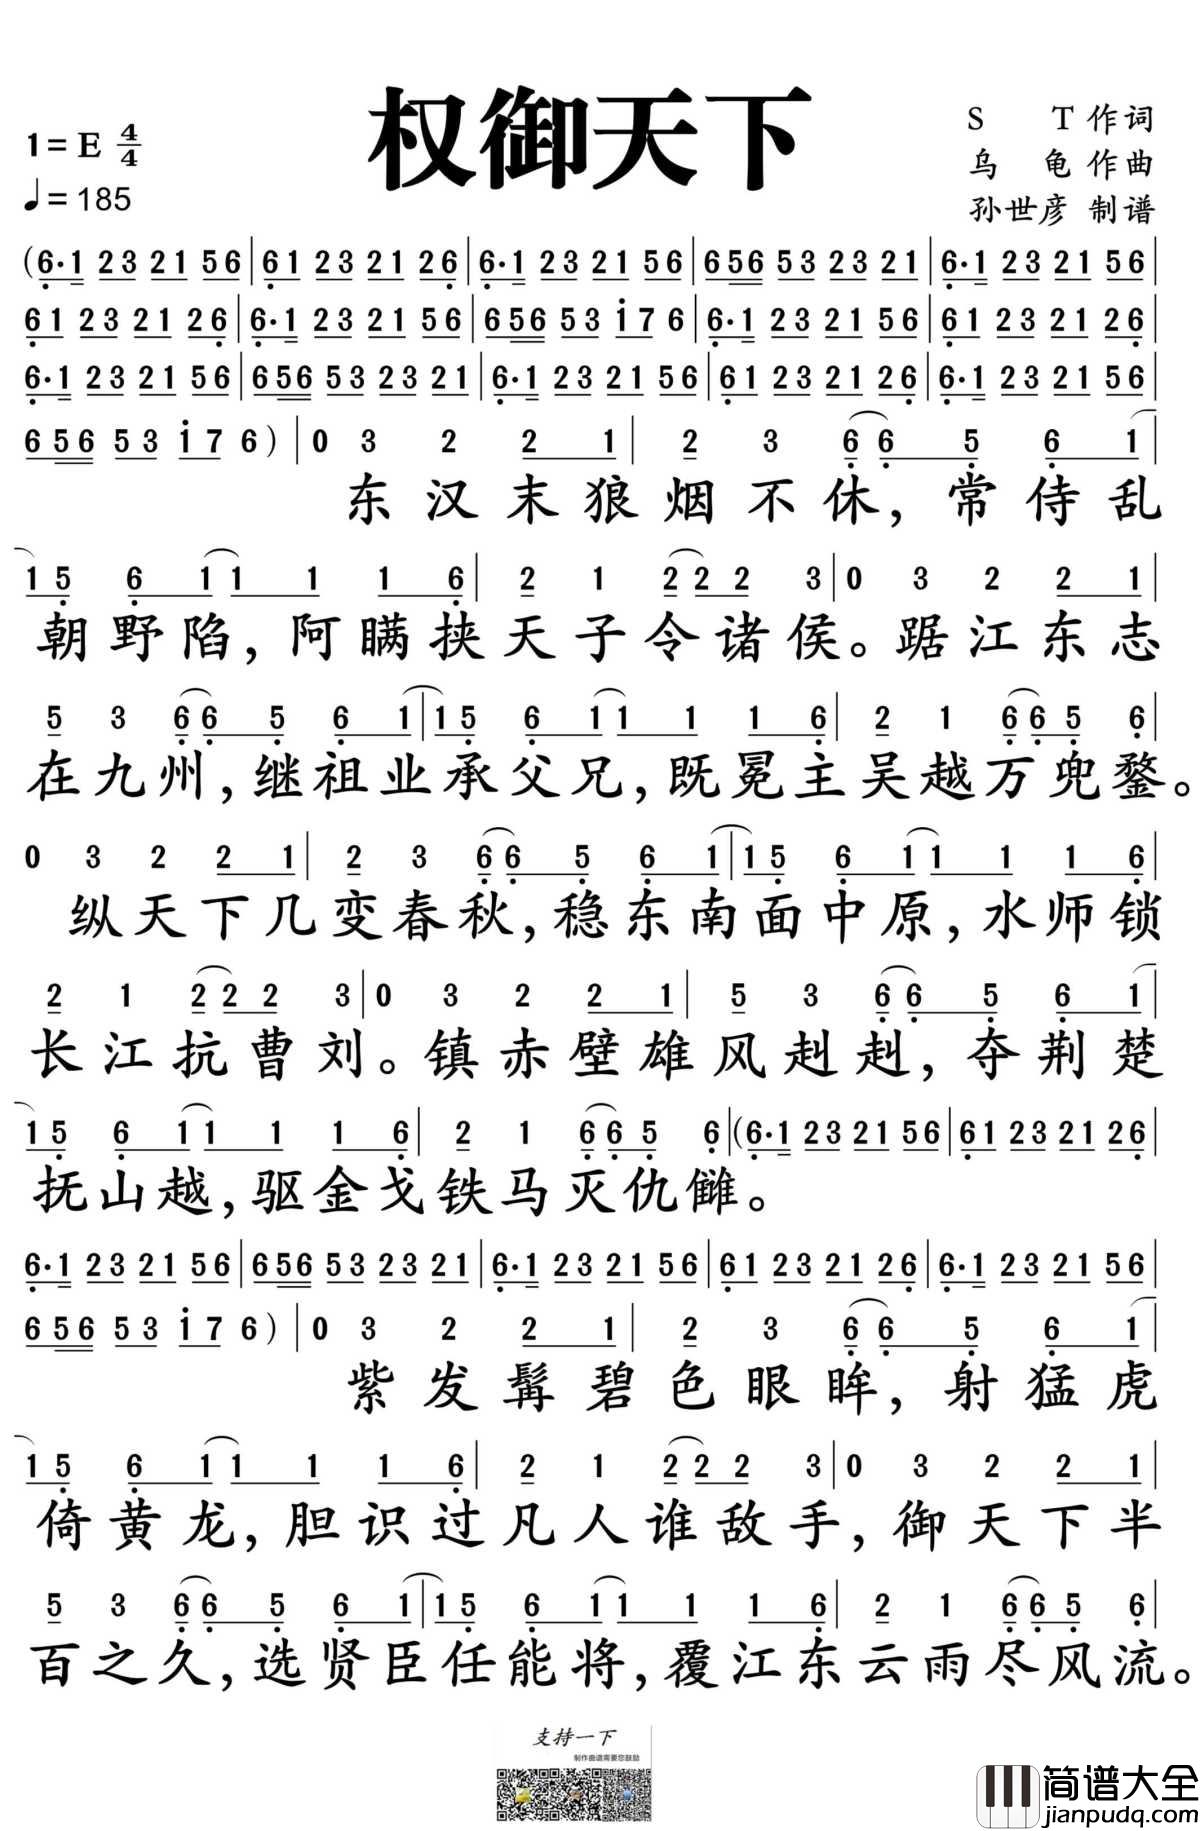 权御天下
1=E 4/4
♩=185
S T 作词
乌龟 作曲
孙世彦 制谱
(6·1 23 21 56|61 23 21 26|6·1 23 21 56|656 53 23 21|6·1 23 21 56|
61 23 21 26|6·1 23 21 56|656 53 i7 6|6·1 23 21 56|61 23 21 26|
6·1 23 21 56|656 53 23 21|6·1 23 21 56|61 23 21 26|6·1 23 21 56|
656 53 i7 6)|0 3 2 2 1|2 3 6 6 5 6 1|
东汉末狼烟不休,常侍乱
1 5 6 1 1 1 1 6|2 1 2 2 2 3|0 3 2 2 1|
朝野陷,阿瞒挟天子令诸侯。踞江东志
5 3 6 6 5 6 1|1 5 6 1 1 1 1 6|2 1 6 6 5 6|
在九州,继祖业承父兄,既冕主吴越万兜鍪。
0 3 2 2 1|2 3 6 6 5 6 1|1 5 6 1 1 1 1 6|
纵天下几变春秋,稳东南面中原,水师锁
2 1 2 2 2 3|0 3 2 2 1|5 3 6 6 5 6 1|
长江抗曹刘。镇赤壁雄风赳赳,夺荆楚
1 5 6 1 1 1 1 6|2 1 6 6 5 6|(6·1 23 21 56|61 23 21 26|
抚山越,驱金戈铁马灭仇雠。
6·1 23 21 56|656 53 23 21|6·1 23 21 56|61 23 21 26|6·1 23 21 56|
656 53 i7 6)|0 3 2 2 1|2 3 6 6 5 6 1|
紫发髯碧色眼眸,射猛虎
1 5 6 1 1 1 1 6|2 1 2 2 2 3|0 3 2 2 1|
倚黄龙,胆识过凡人谁敌手,御天下半
5 3 6 6 5 6 1|1 5 6 1 1 1 1 6|2 1 6 6 5 6|
百之久,选贤臣任能将,覆江东云雨尽风流。
支持一下
制作曲谱需要您鼓励
简谱大全
jianpudq.com